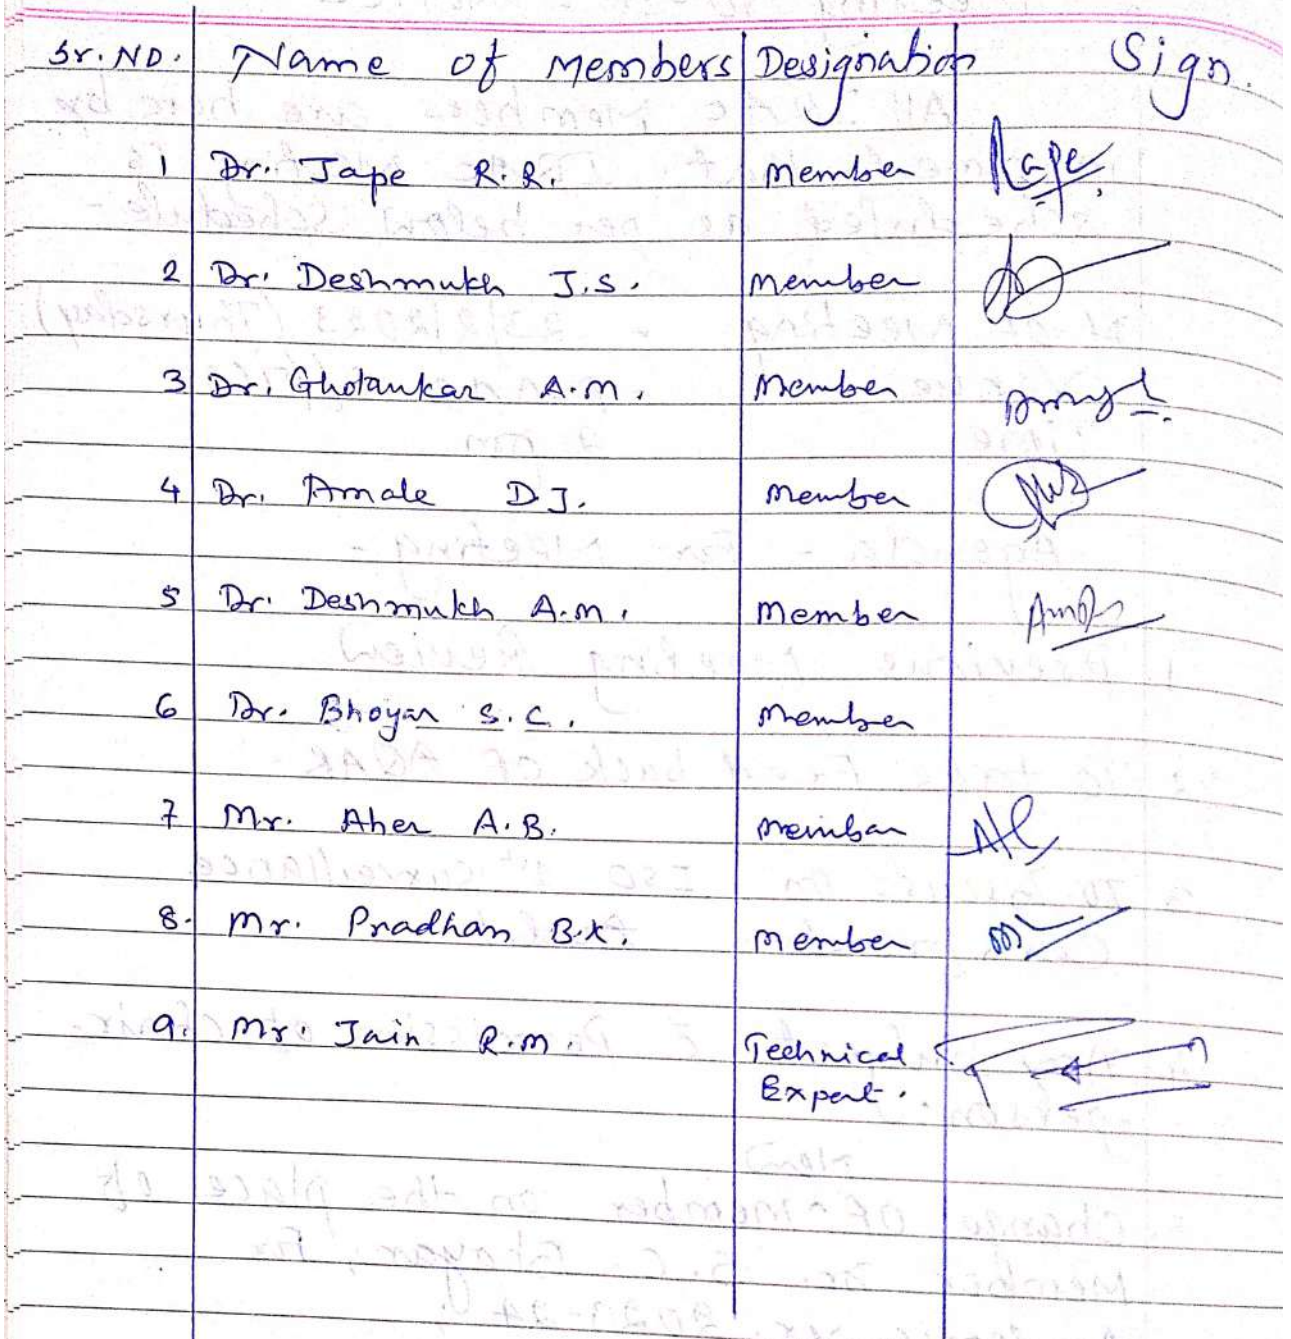 Sr. No. Name of Members Designation Sign.
1 Dr. Jape R.R. Member Rape
2 Dr. Deshmukh J.S. Member
3 Dr. Gholankar A.M. Member
4 Dr. Amale D J. Member
5 Dr. Deshmukh A.M. Member
6 Dr. Bhoyar S.C. Member
7 Mr. Aher A.B. Member
8. Mr. Pradhan B.K. Member
9. Mr. Jain R.M. Technical
Expert.